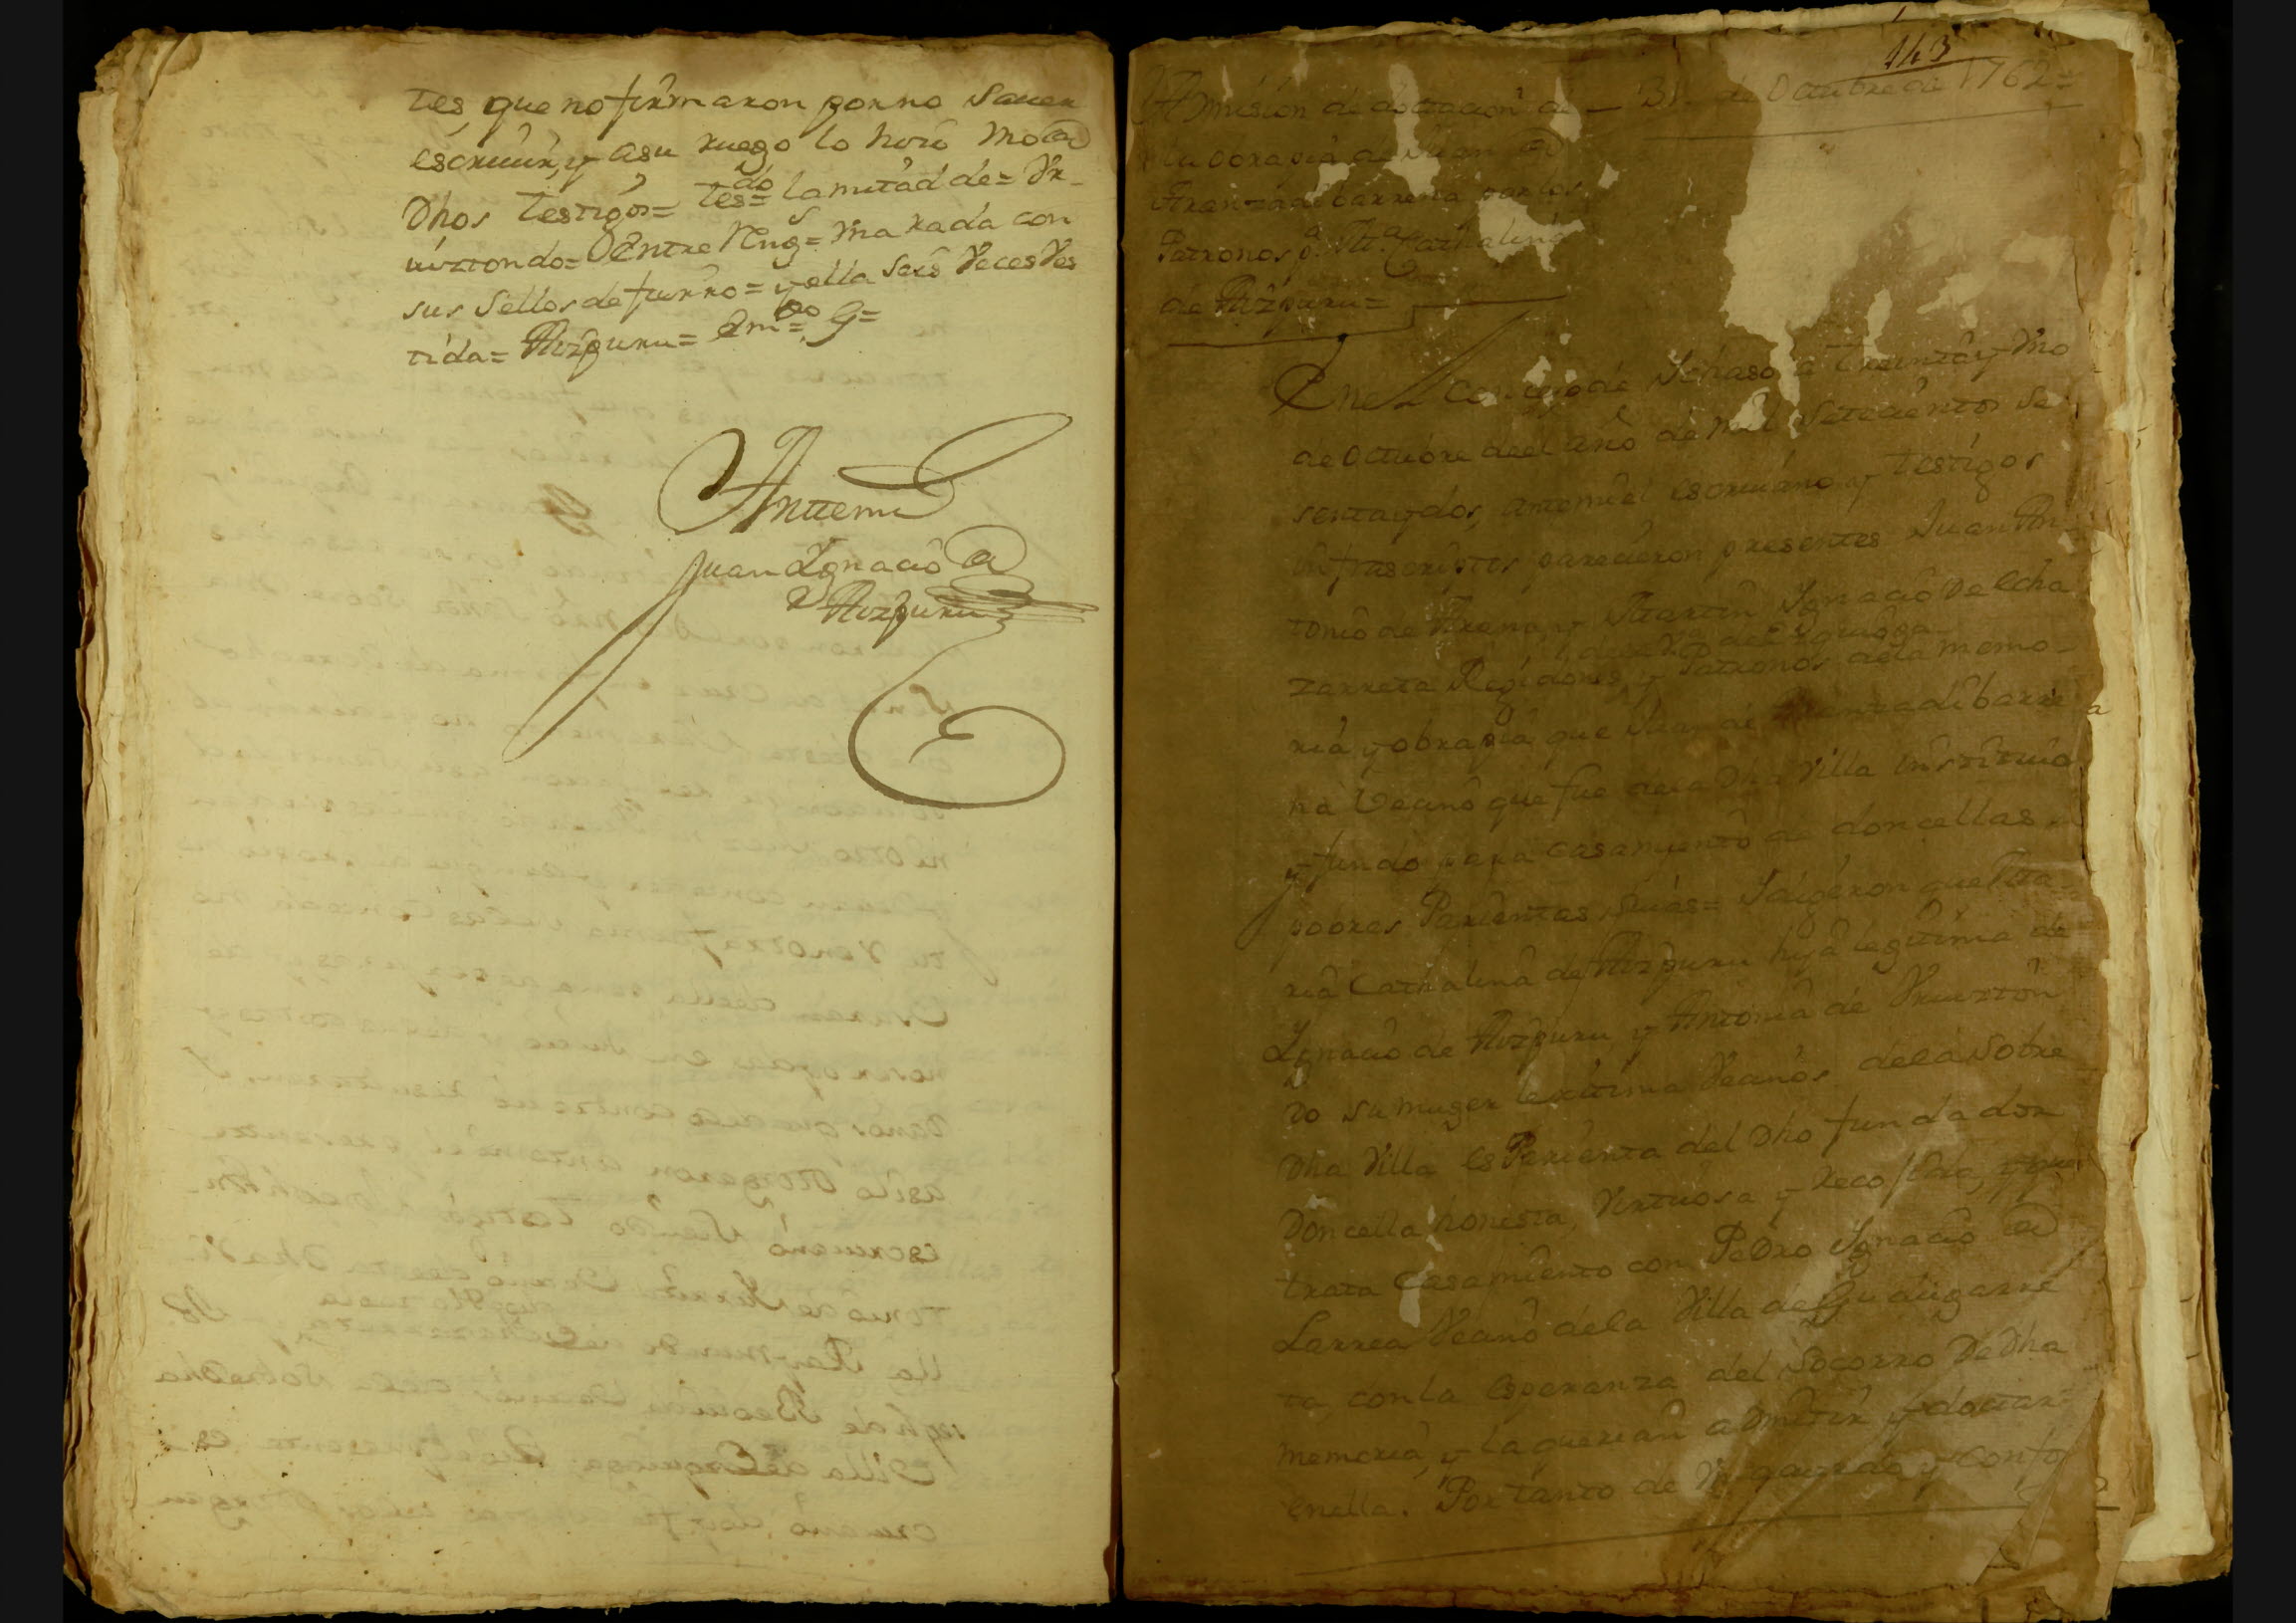 tes, que no firmaron por no saver
escriuir, y a su ruego lo hizo uno de
Dhos testigos = tesdo = la mitad de = Vr-
uiztondo = Entre Rengs = marada con
sus sellos de fierro = y ella seis Veces Ves
tida = Aizpuru = emdo = G =
Antemi
Juan Ignacio de
Aizpuru
143
Admision de dotacion de — 31 de Octubre de 1762 =
la obra pia de Juan de
Aranzadibarrena por los
Patronos a Ma Cathalina
de Aizpuru =
En el Concejo de Ychaso a treinta y Vno
de Octubre de el año de mil Setecientos Se
senta y dos, ante mi el escriuano y testigos
infrascriptos parecieron presentes Juan An-
tonio de Arana, y Martin Ignacio de Echa
de la Va de Ezquioga
zarreta Regidores y Patronos de la memo-
ria y obra pia que Juan de Aranzadibarre
na Vecino que fue de la Dha Villa instituio
y fundo para casamiento de doncellas
pobres Parientas suias = Y digeron que Ma-
ria Cathalina de Aizpuru hija legitima de
Ignacio de Aizpuru y Antonia de Vruizton
do su muger lexitima Vecinos de la Sobre
Dha Villa es Parienta del Dho fundador
Doncella honesta, Virtuosa y recojida, y que
trata Casamiento con Pedro Ignacio de
Larrea Vecino de la Villa de Gudugarre
ta, con la esperanza del Socorro de Dha
memoria, y la querian admitir y dotar
en ella. Por tanto de Vn acuerdo, y confo